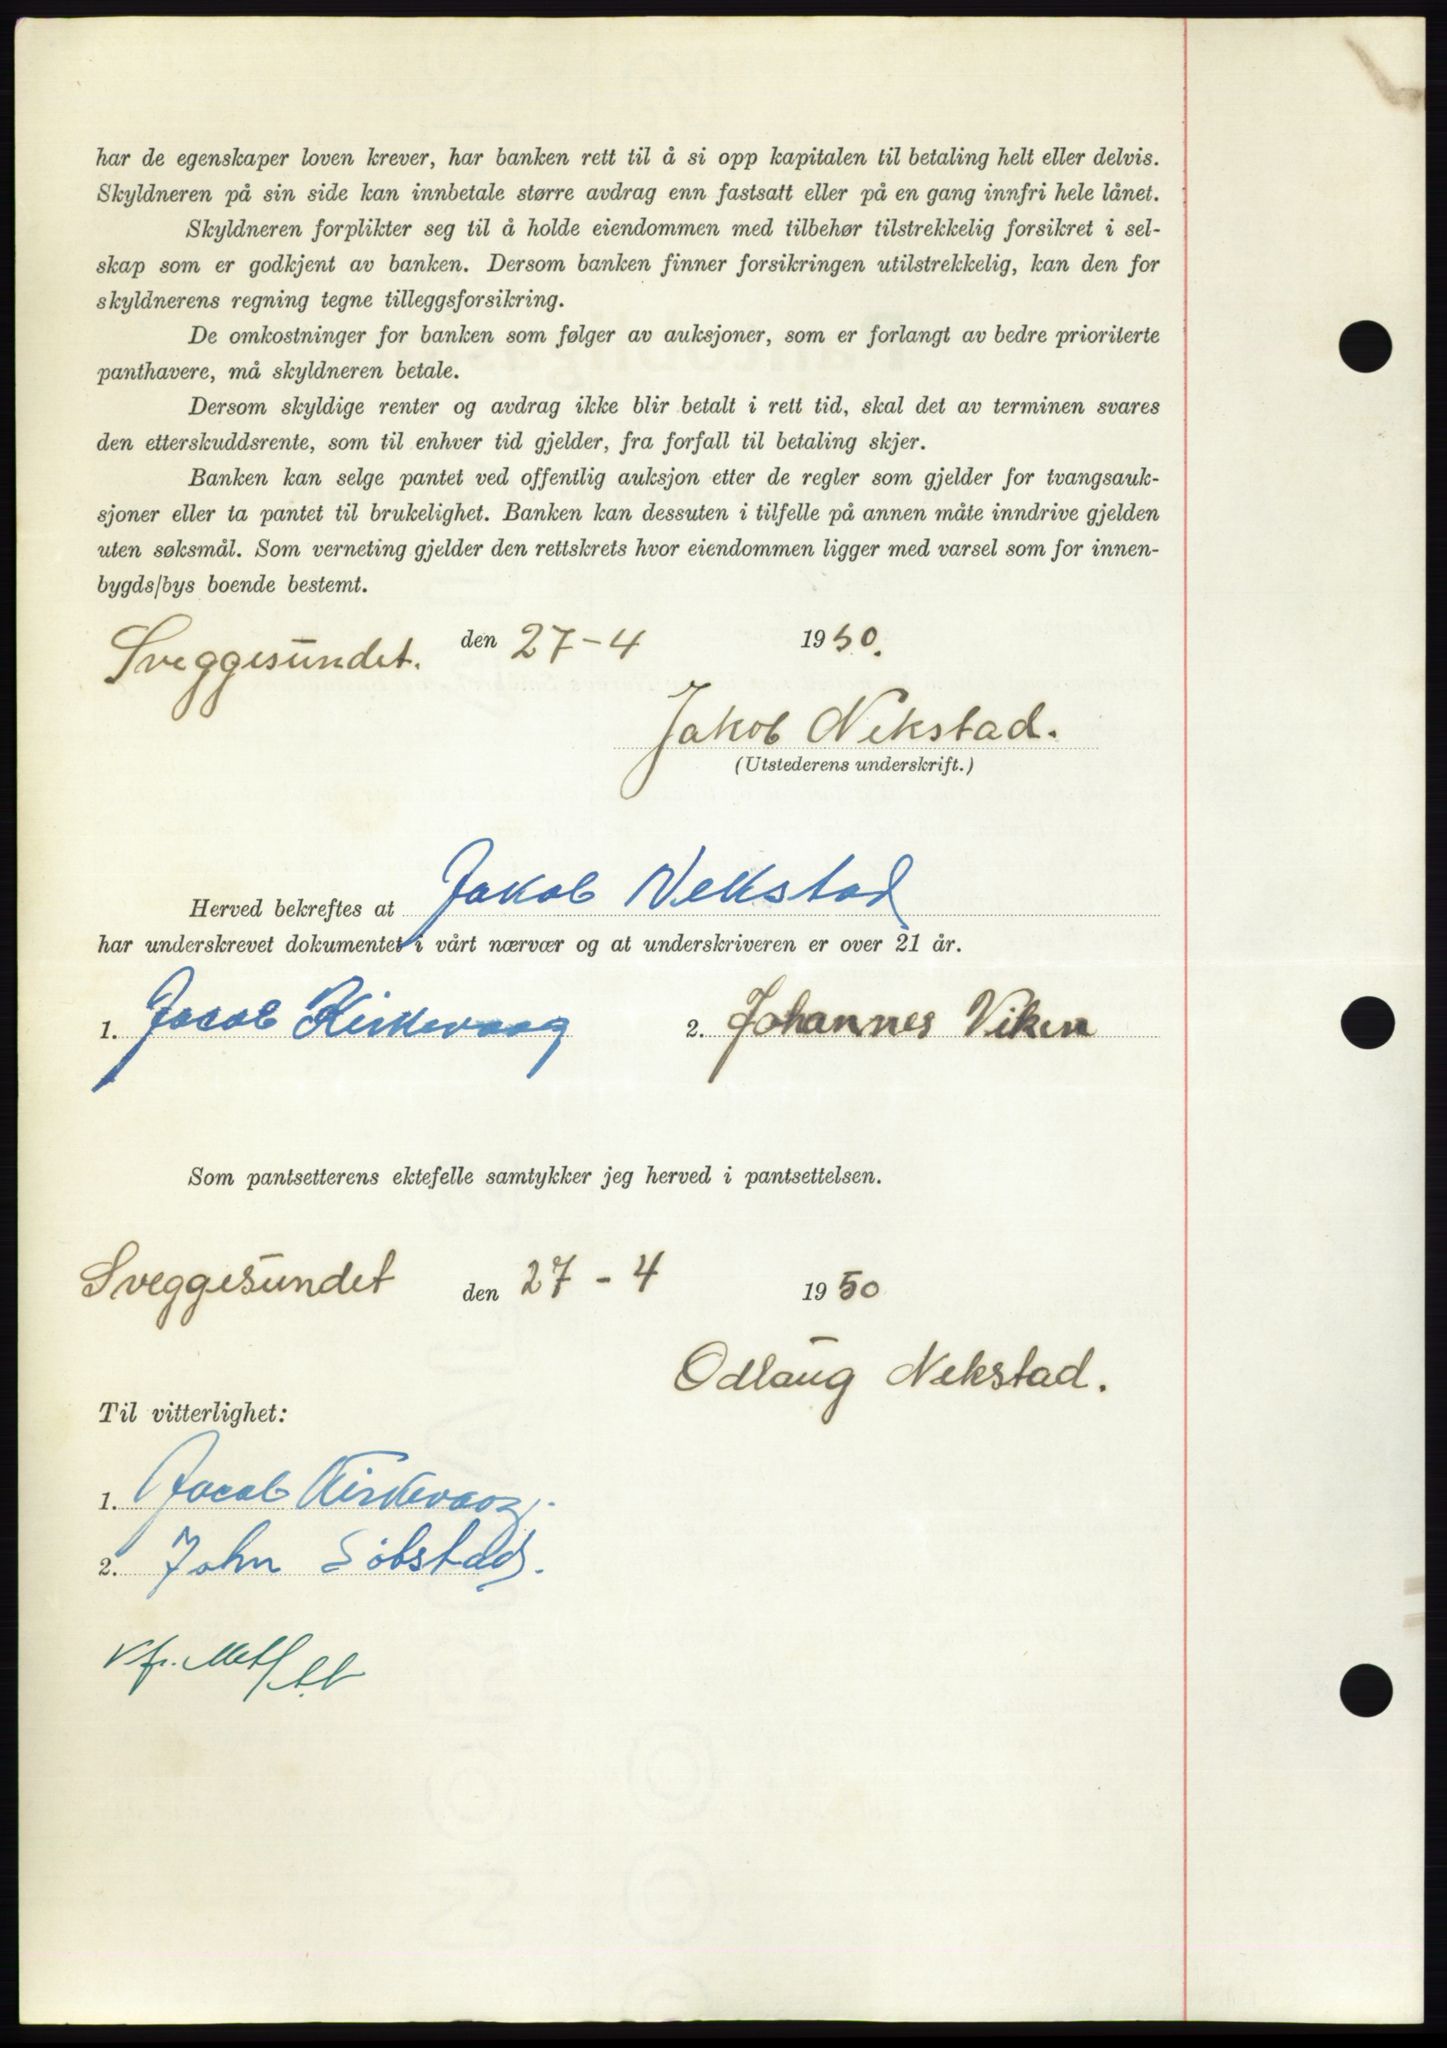 har de egenskaper loven krever, har banken rett til å si opp kapitalen til betaling helt eller delvis.
Skyldneren på sin side kan innbetale større avdrag enn fastsatt eller på en gang innfri hele lånet.
Skyldneren forplikter seg til å holde eiendommen med tilbehør tilstrekkelig forsikret i sel-
skap som er godkjent av banken. Dersom banken finner forsikringen utilstrekkelig, kan den for
skyldnerens regning tegne tilleggsforsikring.
De omkostninger for banken som følger av auksjoner, som er forlangt av bedre prioriterte
panthavere, må skyldneren betale.
Dersom skyldige renter og avdrag ikke blir betalt i rett tid, skal det av terminen svares
den etterskuddsrente, som til enhver tid gjelder, fra forfall til betaling skjer.
Banken kan selge pantet ved offentlig auksjon etter de regler som gjelder for tvangsauk-
sjoner eller ta pantet til brukelighet. Banken kan dessuten i tilfelle på annen måte inndrive gjelden
uten søksmål. Som verneting gjelder den rettskrets hvor eiendommen ligger med varsel som for innen-
bygds/bys boende bestemt.
Sveggesundet. den 27-4 1950.
Jakob Nekstad.
(Utstederens underskrift.)
Herved bekreftes at Jakob Nekstad
har underskrevet dokumentet i vårt nærvær og at underskriveren er over 21 år.
1. Jacob Kirkevaag 2. Johannes Viken
Som pantsetterens ektefelle samtykker jeg herved i pantsettelsen.
Sveggesundet den 27-4 1950
Odlaug Nekstad.
Til vitterlighet:
1. Jacob Kirkevaag.
2. John Sobstad.